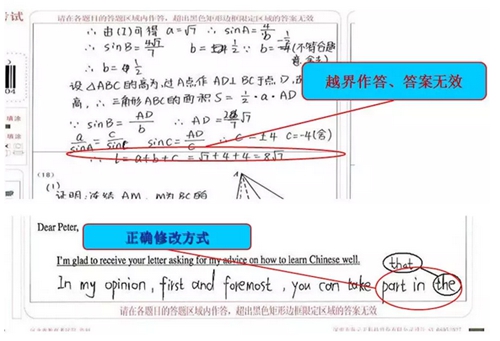 考试
请在各题目的答题区域内作答，超出黑色矩形边框限定区域的答案无效
∴ 由(2)可得 a=√7 ∴ sinA=
∴ sinB=
(不符合题意,舍去)
越界作答、答案无效
设△ABC的高为,过A点作AD⊥BC于点D,
高, ∴ 三角形ABC的面积 S=½·a·AD
∵ sinB=AD/b ∴ AD=
a/sinA=c/sinC sinC=AD/c ∴ c=±4 c=-4(舍)
∴ l=a+b+c=√7+4+4=8√7
(18)
(1)
证明:连结AM, M为BC的
Dear Peter,
正确修改方式
I'm glad to receive your letter asking for my advice on how to learn Chinese well.
that
In my opinion, first and foremost, you can take part in the
请在各题目的答题区域内作答，超出黑色矩形边框限定区域的答案无效